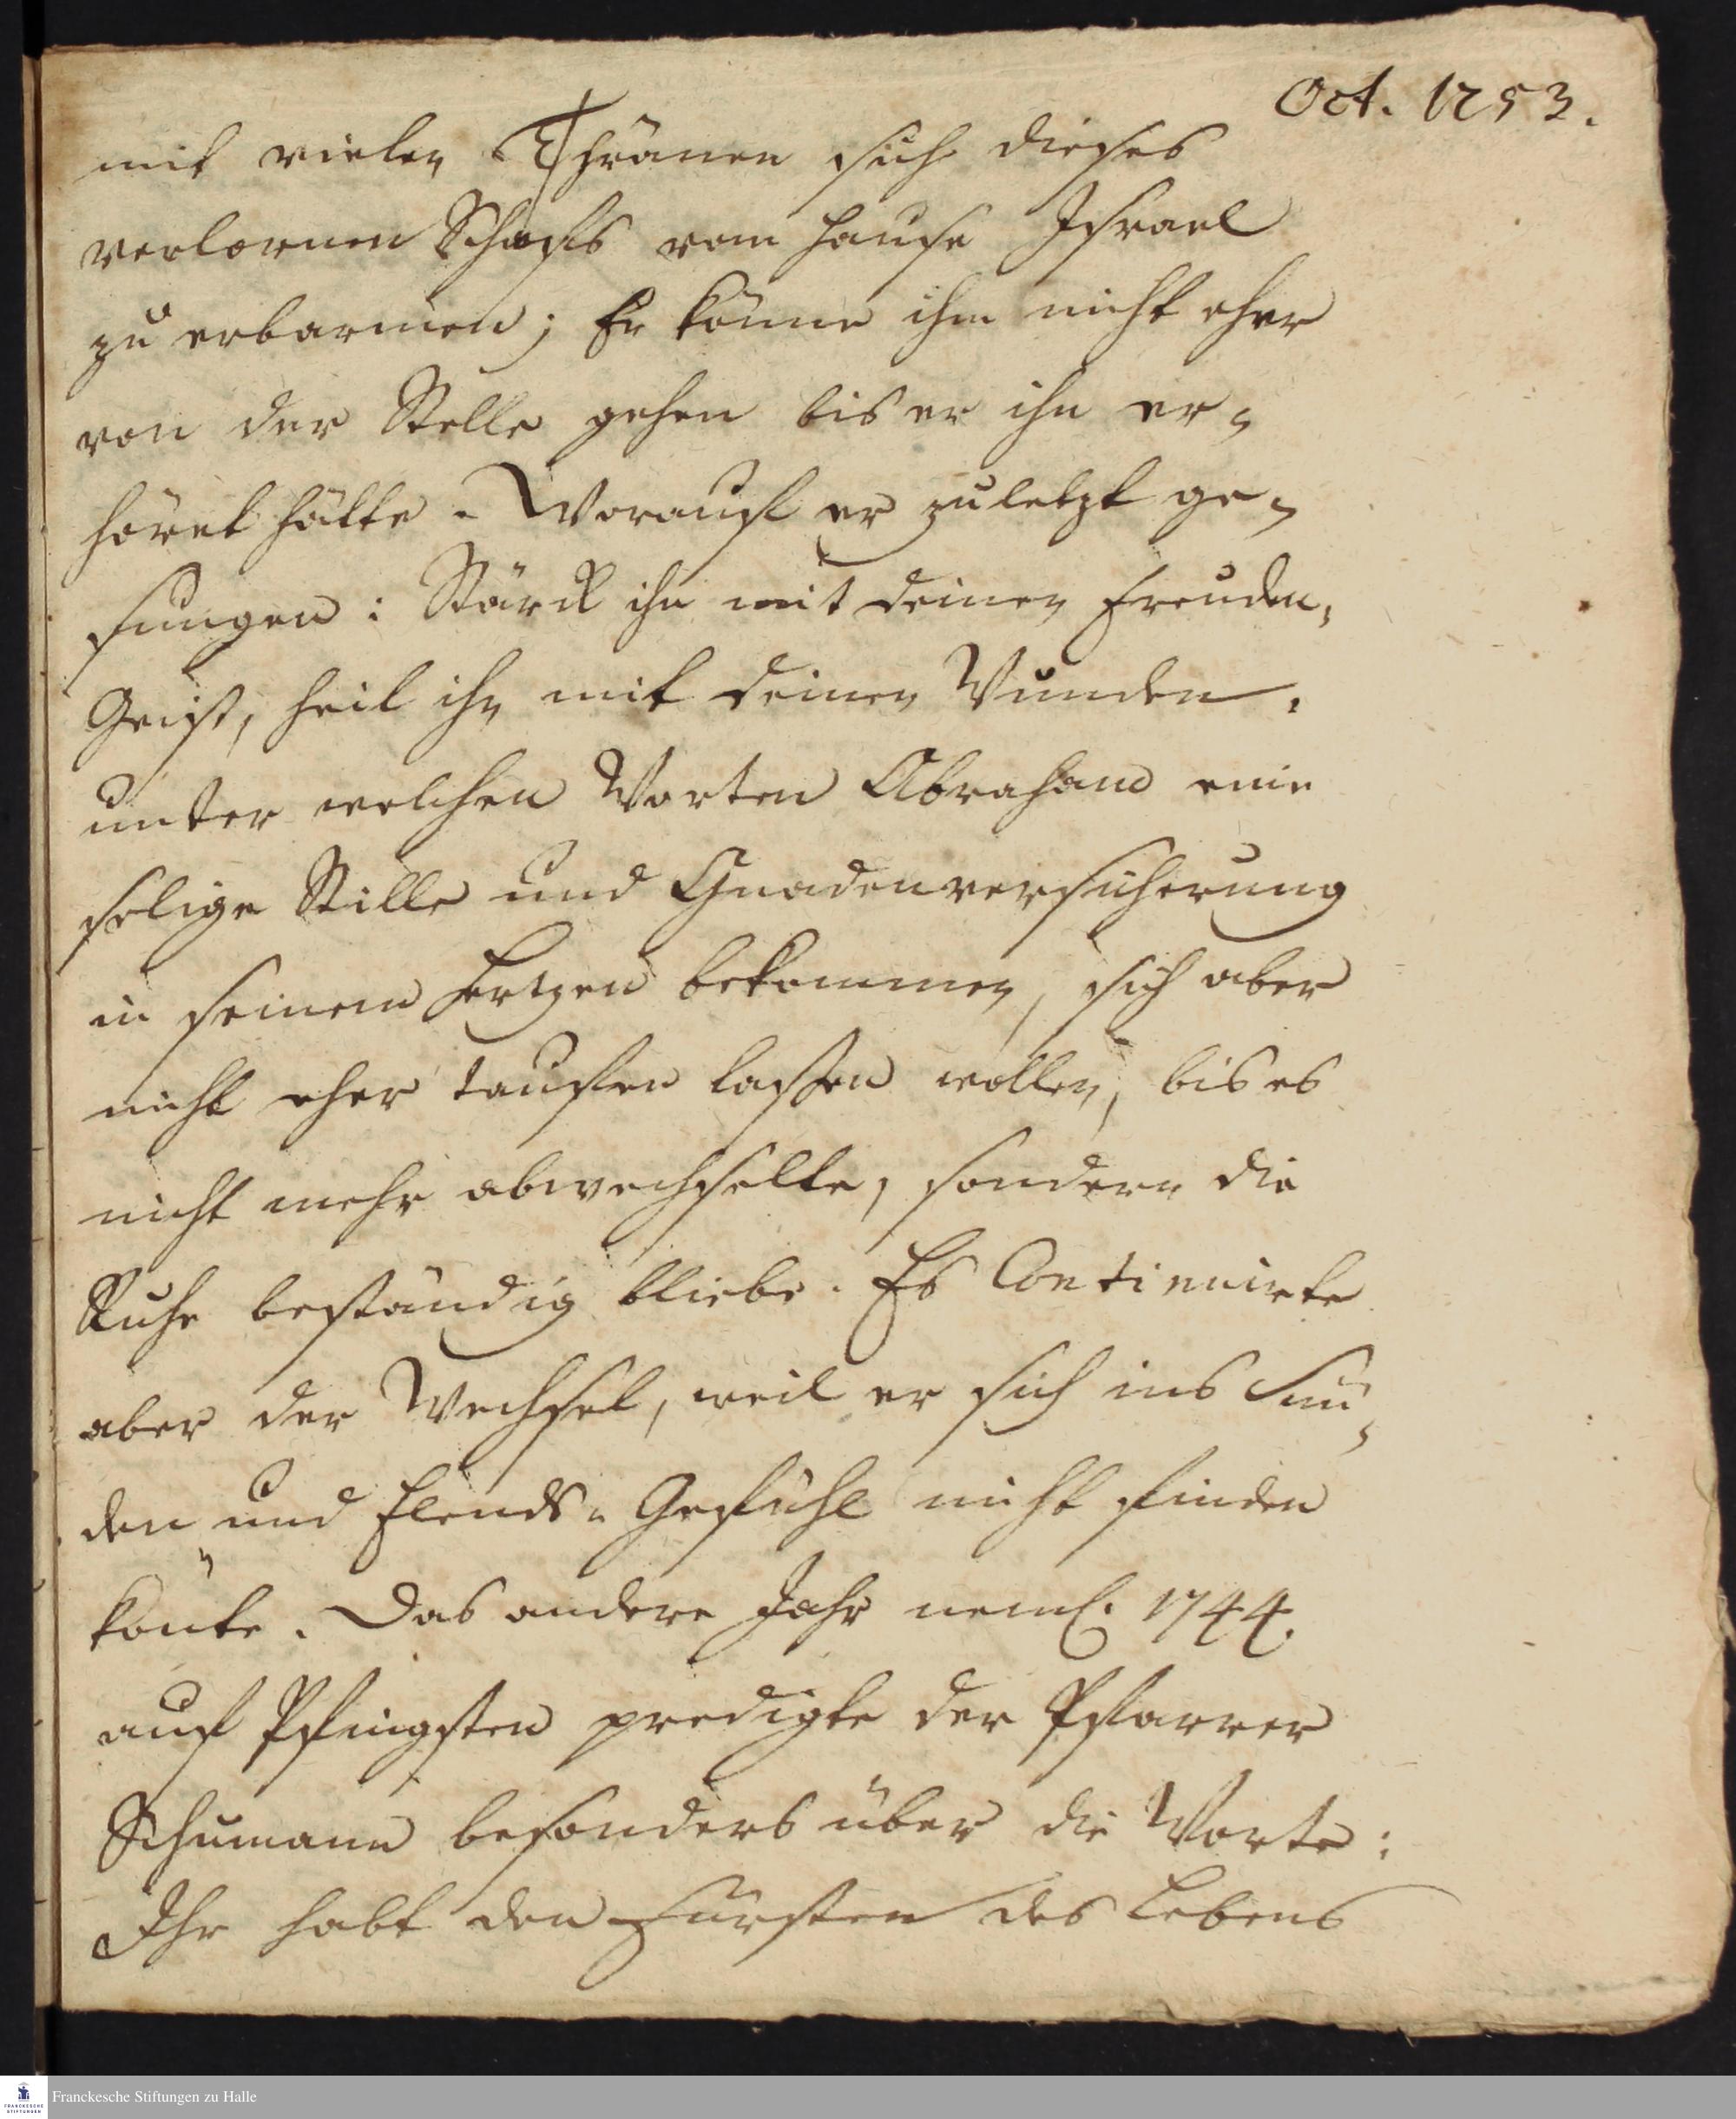 Oct. 1753.
mit vielen Thränen sich dieses
verlornen Schafs vom Hause Israel
zu erbarmen; Er könne ihm nicht eher
von der Stelle gehen bis er ihn er-
höret hätte. Worauf er zuletzt ge-
sungen: Stärck ihn mit deinen Freuden-
Geist, heil ihn mit deinen Wunden.
unter welchen Worten Abraham eine
selige Stille und Gnadenversicherung
in seinem Hertzen bekommen, sich aber
nicht eher tauffen lassen wollen, bis es
nicht mehr abwechselte, sondern die
Ruhe beständig bliebe. Es Continuirte
aber der Wechsel, weil er sich ins Sün-
den und Elends-Gefühl nicht finden
könte. Das andere Jahr neml. 1744.
auf Pfingsten predigte der Pfarrer
Schumann besonders über die Worte:
Ihr habt den Fürsten des Lebens
Franckesche Stiftungen zu Halle
FRANCKESCHE
STIFTUNGEN